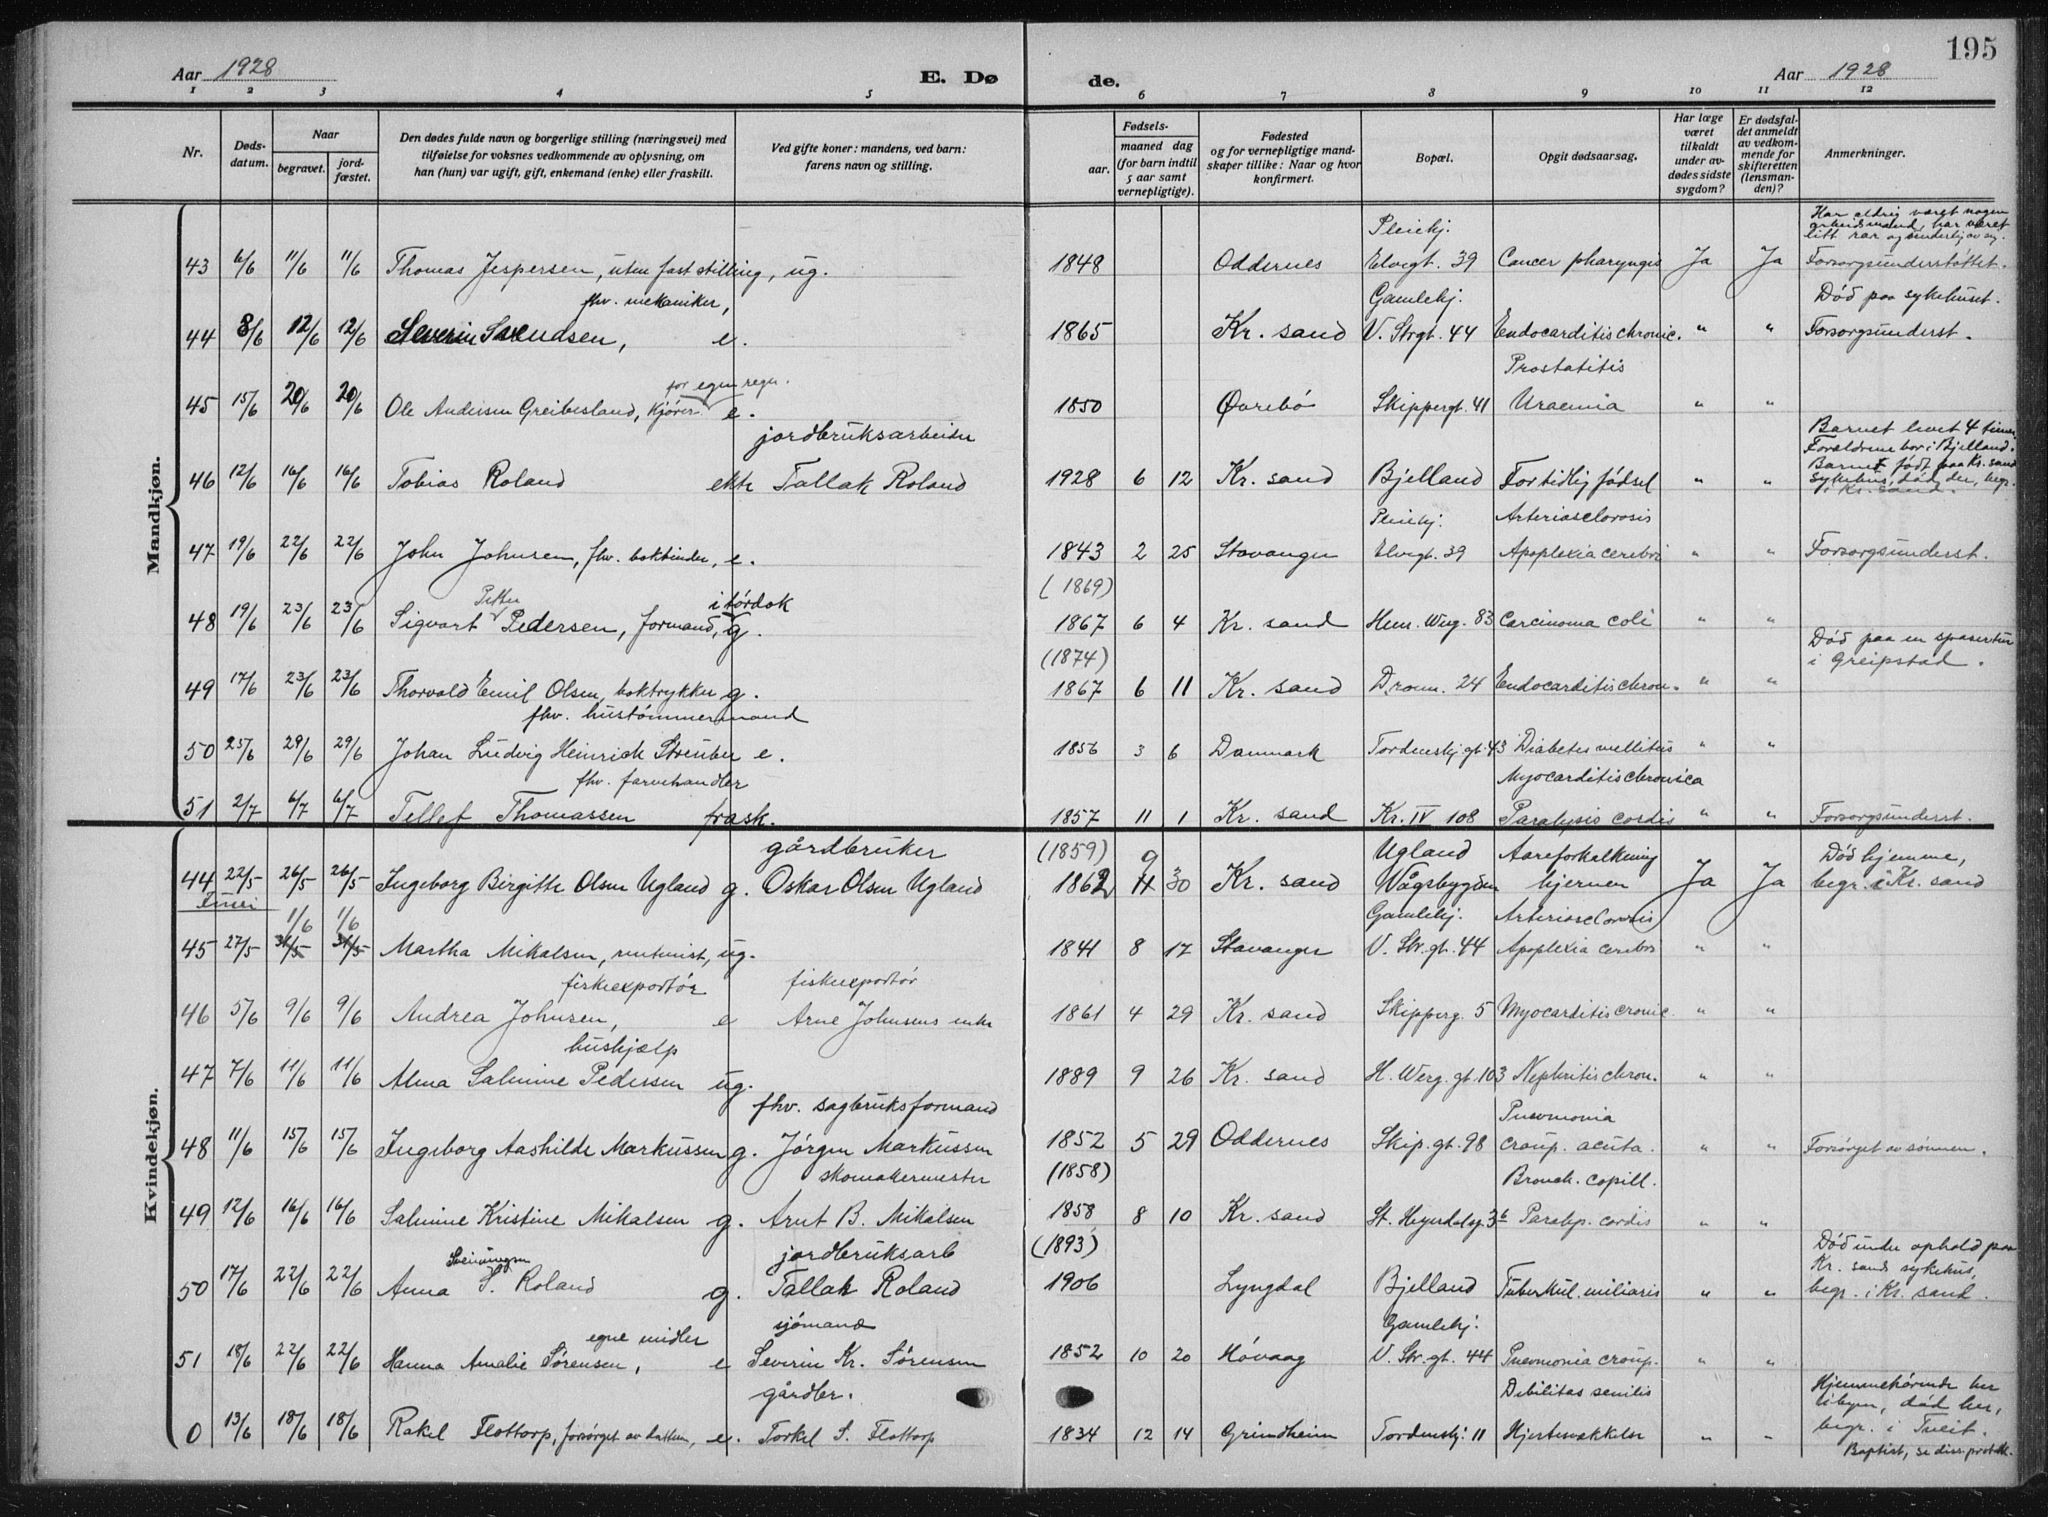 195
Aar 1928
E. Dø
de.
Aar 1928
1 2 3 4 5 6 7 8 9 10 11 12
Nr.
Døds-
datum.
Naar
begravet.
jord-
fæstet.
Den dødes fulde navn og borgerlige stilling (næringsvei) med
tilføielse for voksnes vedkommende av oplysning, om
han (hun) var ugift, gift, enkemand (enke) eller fraskilt.
Ved gifte koner: mandens, ved barn:
farens navn og stilling.
Fødsels-
aar.
maaned dag
(for barn indtil
5 aar samt
vernepligtige).
Fødested
og for vernepligtige mand-
skaper tillike: Naar og hvor
konfirmert.
Bopæl.
Opgit dødsaarsag.
Har læge
været
tilkaldt
under av-
dødes sidste
sygdom?
Er dødsfal-
det anmeldt
av vedkom-
mende for
skifteretten
(lensman-
den)?
Anmerkninger.
Mandkjøn.
Pleiehj. Har aldrig været nogen
arbeidsmand, har været
litt rar og
43 6/6 11/6 11/6 Thomas Jespersen, uten fast stilling, ug. 1848 Oddernes Elvegt. 39 Cancer pharyngis Ja Ja Forsorgsunderstøttet.
fhv. mekaniker, Gamlehj. Død paa sykehuset.
44 8/6 12/6 12/6 Severin Svendsen, e. 1865 Kr. sand V. Strgt. 44 Endocarditis chronic. " " Forsorgsunderst.
for egen regn. Prostatitis
45 15/6 20/6 20/6 Ole Andersen Greibesland, kjører e. 1850 Øvrebø Skippergt. 41 Uraemia " "
jordbruksarbeider Barnet levet 4 timer
Forældrene bor i Bjelland.
Barnet født paa Kr. sand
46 12/6 16/6 16/6 Tobias Roland ekte Tallak Roland 1928 6 12 Kr. sand Bjelland For tidlig fødsel " " sykehus, død der, begr.
i Kr. sand.
Pleiehj. Arteriosclerosis
47 19/6 22/6 22/6 John Johnsen, fhv. bokbinder, e. 1843 2 25 Stavanger Elvegt. 39 Apoplexia cerebri " " Forsorgsunderst.
Petter i tørdok (1869)
48 19/6 23/6 23/6 Sigvart Pedersen, formand, g. 1867 6 4 Kr. sand Henr. Werg. 83 Carcinoma coli " "
(1874) Død paa en spasertur
i Greipstad.
49 17/6 23/6 23/6 Thorvald Emil Olsen, boktrykker g. 1867 6 11 Kr. sand Dronn. 24 Endocarditis chron. " "
fhv. hustømmermand
50 25/6 29/6 29/6 Johan Ludvig Heinrich Streuber e. 1856 3 6 Danmark Tordenskj. gt. 43 Diabetes mellitus " "
fhv. farvehandler Myocarditis chronica
51 2/7 6/7 6/7 Tellef Thomassen frask. 1857 11 1 Kr. sand Kr. IV 108 Paralysis cordis " " Forsorgsunderst.
Kvindekjøn.
gårdbruker (1859) 9 Ugland Aareforkalkning Død hjemme,
44 22/5 26/5 26/5 Ingeborg Birgitte Olsen Ugland g. Oskar Olsen Ugland 1862 4 30 Kr. sand Vågsbygden hjernen Ja Ja begr. i Kr. sand
1/6 1/6 Gamlehj. Arteriosclerosis
45 27/5 31/5 31/5 Martha Mikalsen, rentenist, ug. 1841 8 17 Stavanger V. Str. gt. 44 Apoplexia cerebri " "
fiskeexportør fiskeexportør
46 5/6 9/6 9/6 Andrea Johnsen, e Arne Johnsens enke 1861 4 29 Kr. sand Skipperg. 5 Myocarditis cronic. " "
hushjælp
47 7/6 11/6 11/6 Alma Salmine Pedersen ug. 1889 9 26 Kr. sand H. Werg. gt. 103 Nephritis chron. " "
fhv. sagbruksformand Pneumonia
48 11/6 15/6 15/6 Ingeborg Aashilde Markussen g. Jørgen Markussen 1852 5 29 Oddernes Skip. gt. 98 croup. acuta. " " Forsørget av sønnen.
skomakermester (1858) Bronch. capill.
49 12/6 16/6 16/6 Salmine Kristine Mikalsen g. Arnt B. Mikalsen 1858 8 10 Kr. sand St. Heyerdalsg. 36 Paralyp. cordis " "
jordbruksarb (1893) Død under ophold paa
Kr. sands sykehus,
50 17/6 22/6 22/6 Anna S. Roland g. Tallak Roland 1906 Lyngdal Bjelland Tuberkul. miliaris " " begr. i Kr. sand.
egne midler sjømand Gamlehj.
51 18/6 22/6 22/6 Hanna Amalie Sørensen, e Severin Kr. Sørensen 1852 10 20 Høvaag V. Str. gt. 44 Pneumonia croup. " "
gårdbr. Debilitas senilis Hjemmehørende her
i byen, død her,
0 13/6 18/6 18/6 Rakel Flottorp, forsørget av datteren, e. Torkel S. Flottorp 1834 12 14 Grindheim Tordenskj. 11 Hjertesvækkelse " " begr. i Tveit.
Baptist, se diss. protok.